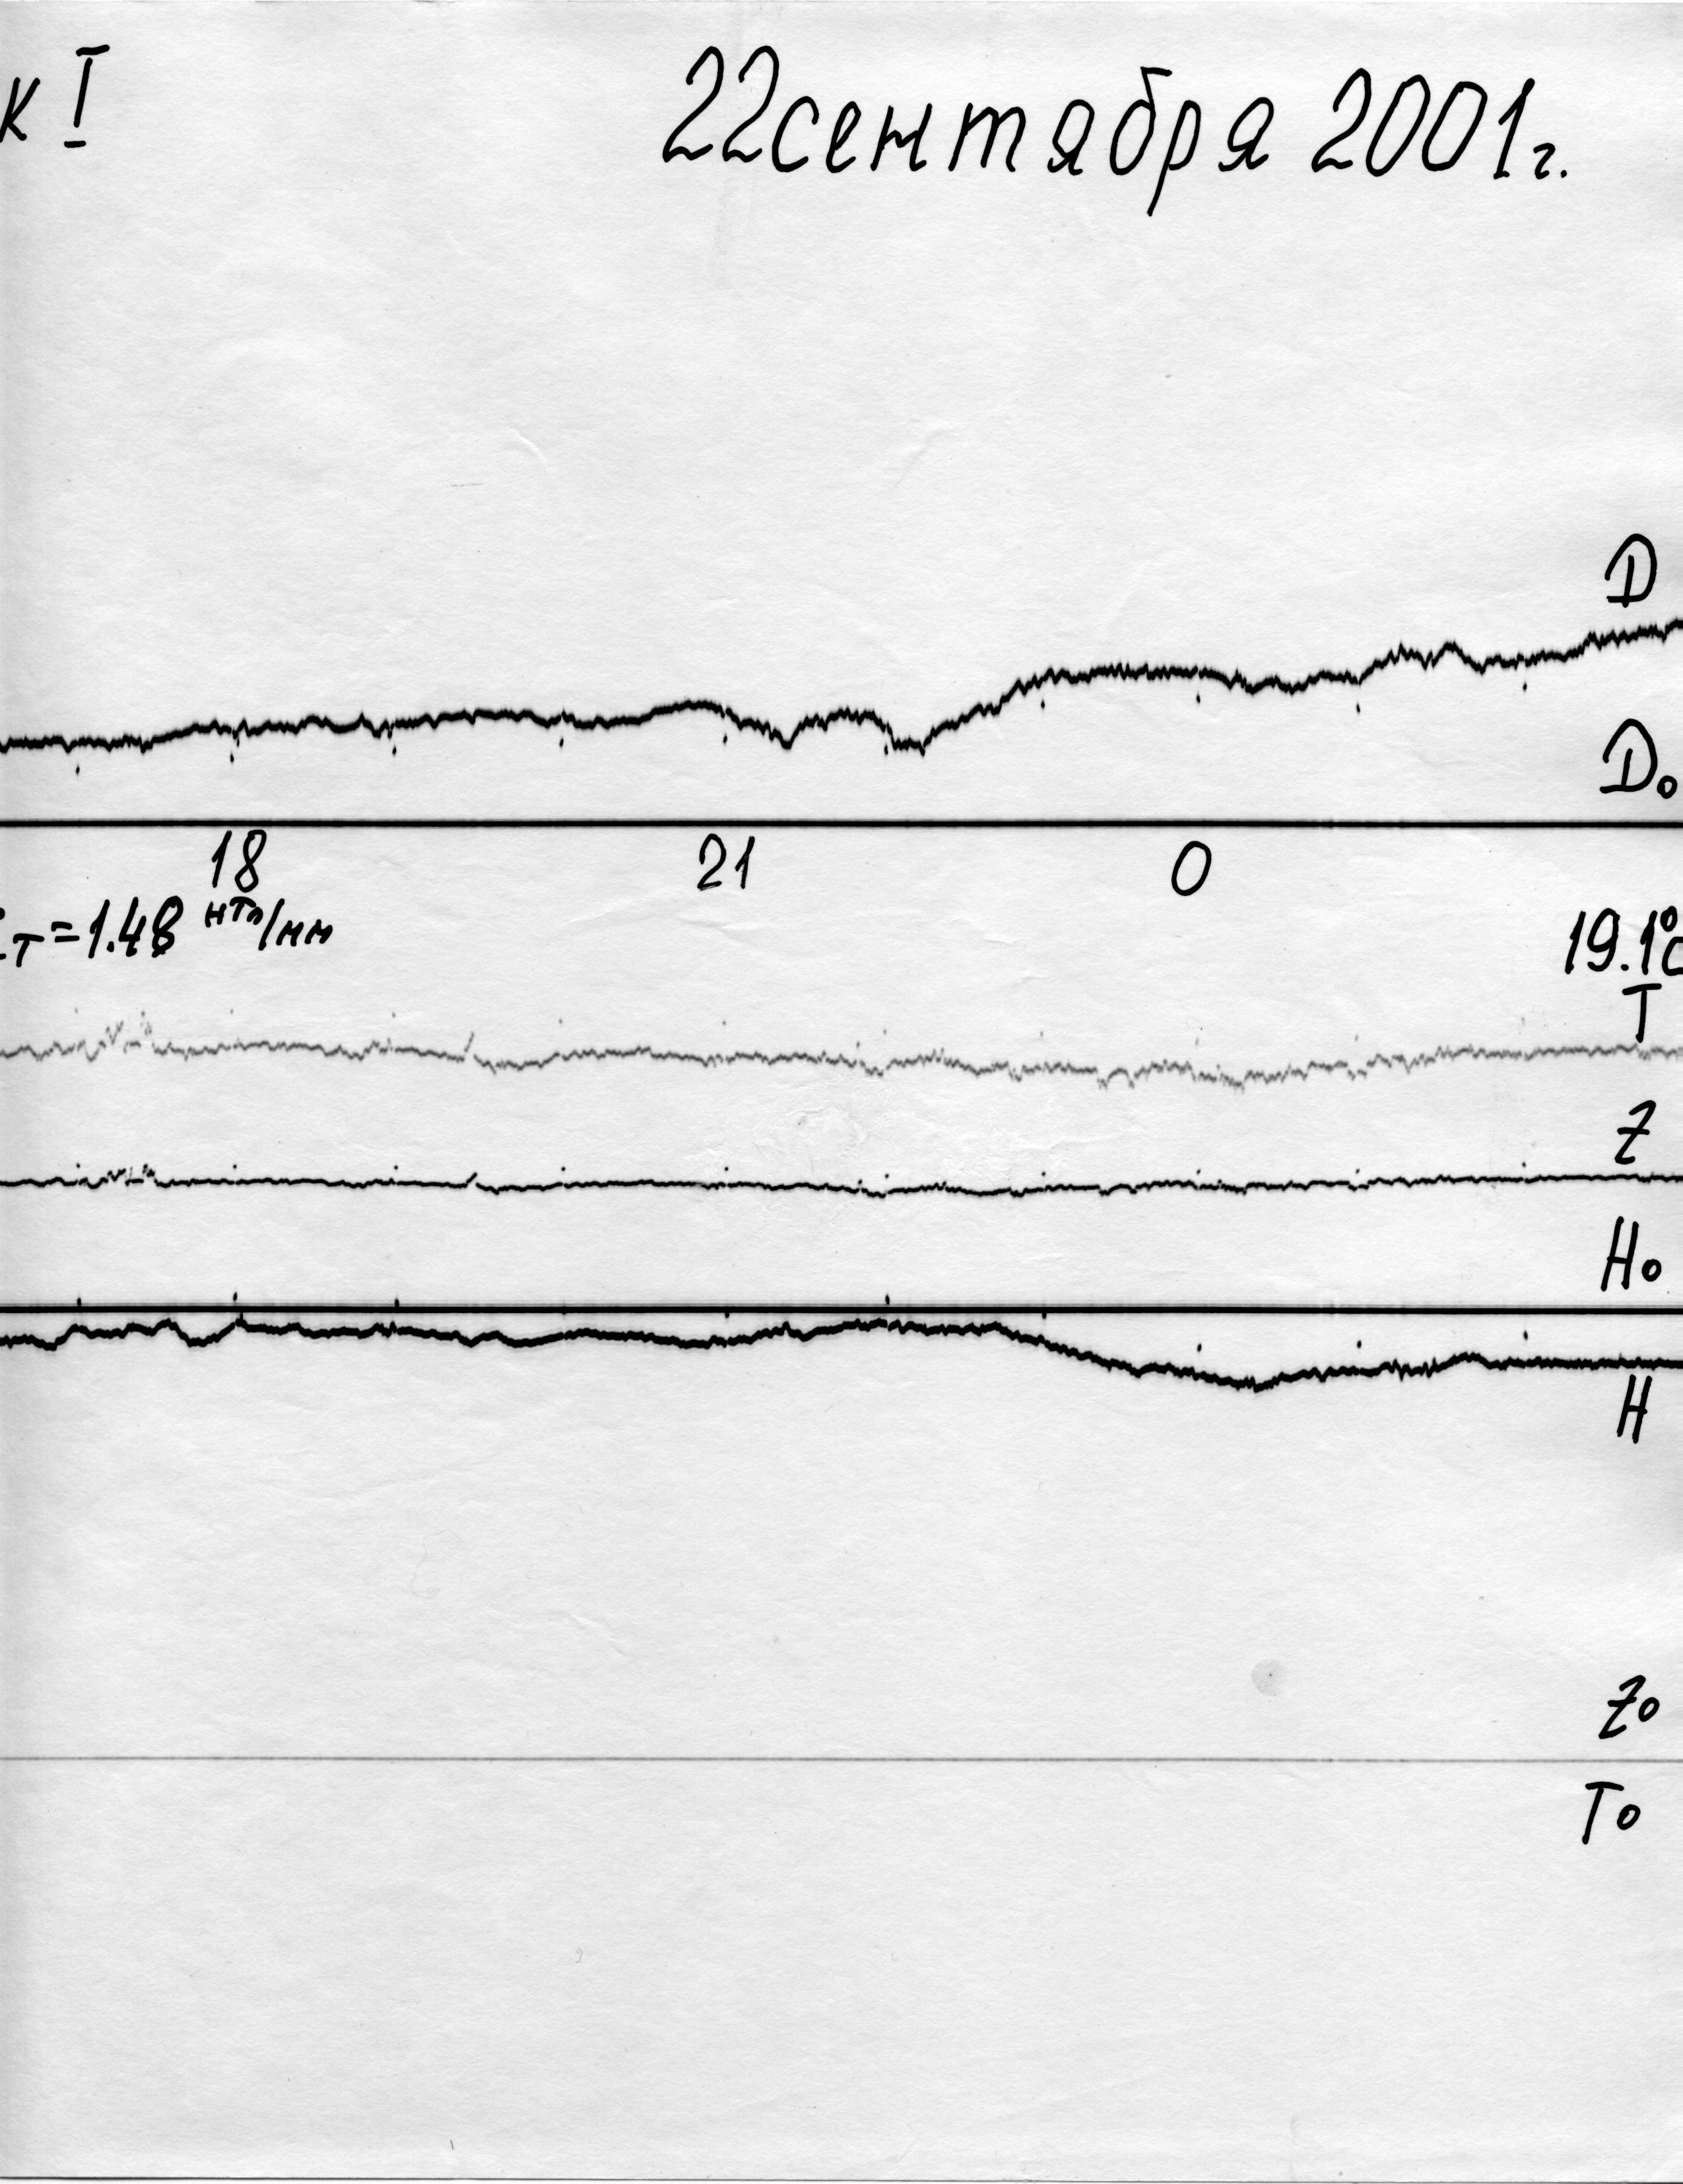 к I 22 сентября 2001г.
D
D₀
18 21 0
т=1.48 нТл/мм 19.1°C
T
Z
H₀
H
Z₀
T₀